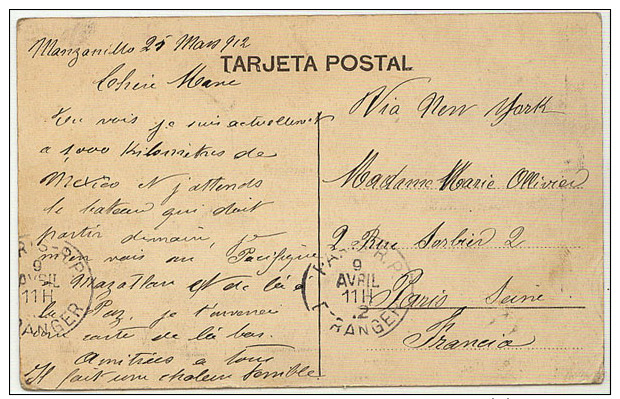 Manzanillo 25 Mars 912
TARJETA POSTAL
Chère Marie
Tu vois je suis actuellement
à 1,000 kilomètres de
Mexico et j'attends
le bateau qui doit
partir demain, je
m'en vais au Pacifique
à Mazatlan et de là à
La Paz, je t'enverrai
une carte de là bas.
Amitiées à tous
Il fait une chaleur terrible
Via New York
Madame Marie Ollivier
2 Rue Sorbier 2
Paris Seine
Francia
PARIS R.P.
9
AVRIL
11H
12
ETRANGER
R.P.
9
AVRIL
11H
12
RANGER